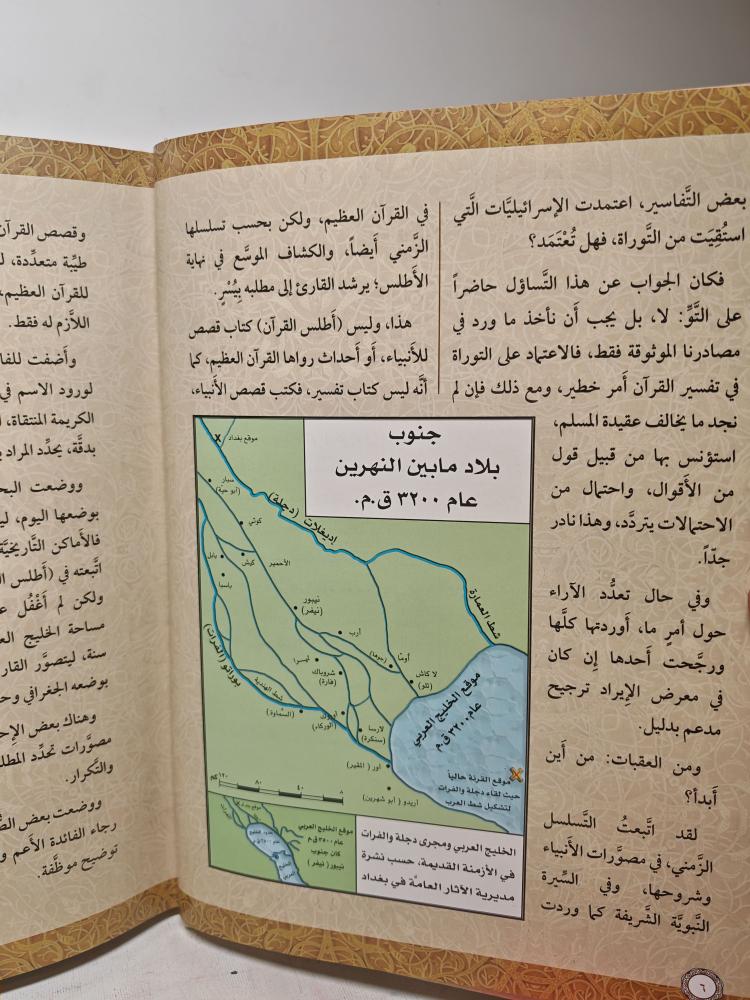 بعض التَّفاسير، اعتمدت الإسرائيليَّات الَّتي
استُقِيَت من التَّوراة، فهل تُعْتَمَد؟
فكان الجواب عن هذا التَّساؤل حاضراً
على التَّوِّ: لا، بل يجب أن نأخذ ما ورد في
مصادرنا الموثوقة فقط، فالاعتماد على التوراة
في تفسير القرآن أمر خطير، ومع ذلك فإن لم
نجد ما يخالف عقيدة المسلم،
استؤنس بها من قبيل قول
من الأقوال، واحتمال من
الاحتمالات يتردَّد، وهذا نادر
جدّاً.
وفي حال تعدُّد الآراء
حول أمرٍ ما، أوردتها كلَّها
ورجَّحت أحدها إن كان
في معرض الإيراد ترجيح
مدعم بدليل.
ومن العقبات: من أين
أبدأ؟
لقد اتَّبعتُ التَّسلسل
الزَّمني، في مصوَّرات الأنبياء
وشروحها، وفي السِّيرة
النَّبويَّة الشَّريفة كما وردت
في القرآن العظيم، ولكن بحسب تسلسلها
الزَّمني أيضاً، والكشاف الموسَّع في نهاية
الأطلس؛ يرشد القارئ إلى مطلبه بِيُسْرٍ.
هذا، وليس (أطلس القرآن) كتاب قصص
للأنبياء، أو أحداث رواها القرآن العظيم، كما
أنَّه ليس كتاب تفسير، فكتب قصص الأنبياء،
جنوب
بلاد مابين النهرين
عام ٣٢٠٠ ق.م.
موقع بغداد
X
سبار
(أبو حبة)
إديغلات (دجلة)
كوثي
بابل
كيش
الأحيمر
باسبا
نيبور
(نيفر)
شط العمارة
أرب
أوما
(جوخا)
لاكاش
(تلو)
شروباك
(فارة)
بوراتو (الفرات)
شط الهندية
(السَّماوة)
(الوركاء)
لارسا
(سنكرة)
أور (المقير)
أريدو (أبو شهرين)
موقع الخليج العربي
عام ٣٢٠٠ ق.م.
موقع القرنة حالياً
حيث لقاء دجلة والفرات
لتشكيل شط العرب
١٢٠ ٨٠ ٤٠ ٠
كم
موقع الخليج العربي
كان جنوب
نيبور (نيفر)
الخليج العربي ومجرى دجلة والفرات
في الأزمنة القديمة، حسب نشرة
مديرية الآثار العامة في بغداد
٦
وقصص القرآن
طيِّبة متعدِّدة،
للقرآن العظيم،
اللاَّزم له فقط.
وأضفت
لورود الاسم في
الكريمة المنتقاة،
بدقَّة، يحدِّد المراد
ووضعت
بوضعها اليوم،
فالأماكن التَّاريخيَّة
اتَّبعته في (أطلس
ولكن لم أغْفُل
مساحة الخليج
سنة، ليتصوَّر
بوضعه الجغرافي
وهناك بعض
مصوَّرات تحدِّد
والتَّكرار.
ووضعت بعض
رجاء الفائدة الأعم
توضيح موظَّفة.